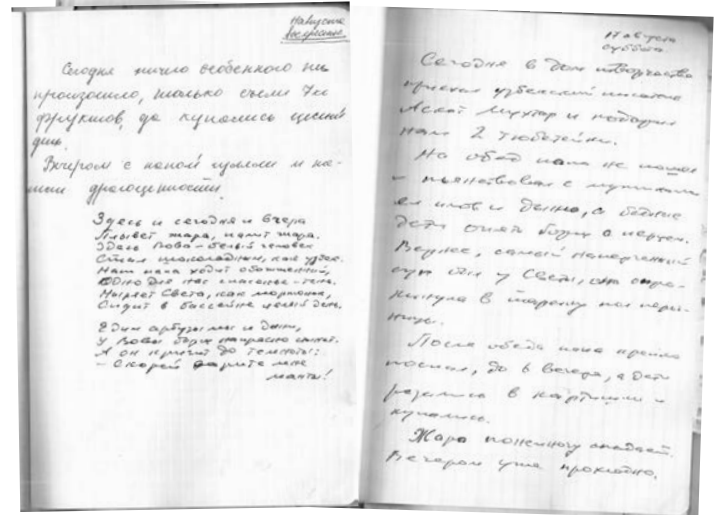 августа
воскресенье
Сегодня ничего особенного не
произошло, только съели 7кг
фруктов, да купались целый
день.
Вечером с папой гуляли и на-
драгоценности.
Здесь и сегодня и вчера
Плывет жара, палит жара.
Здесь Вова – белый человек
Стал шоколадным, как узбек.
Наш папа ходит обожженный,
Одно для нас спасенье – тень.
Ныряет Света, как моржонок,
Сидит в бассейне целый день.
Едим арбузы мы и дыни,
У Вовы борщ напрасно стынет.
А он кричит до темноты:
– Скорей дарите мне
манты!
17 августа
суббота.
Сегодня в дом творчества
приехал узбекский писатель
Аскат Мухтар и подарил
нам 2 тюбетейки.
На обед папа не пошел
и пьянствовал с
ел плов и дыню, а бедные
дети опять борщ с перцем.
Вернее, самый наперченный
суп был у Светы, она опро-
кинула в тарелку пол переч-
ницы.
После обеда папа крепко
поспал, до 6 вечера, а дети
резались в картишки и
купались.
Жара понемногу спадает.
Вечером уже прохладно.